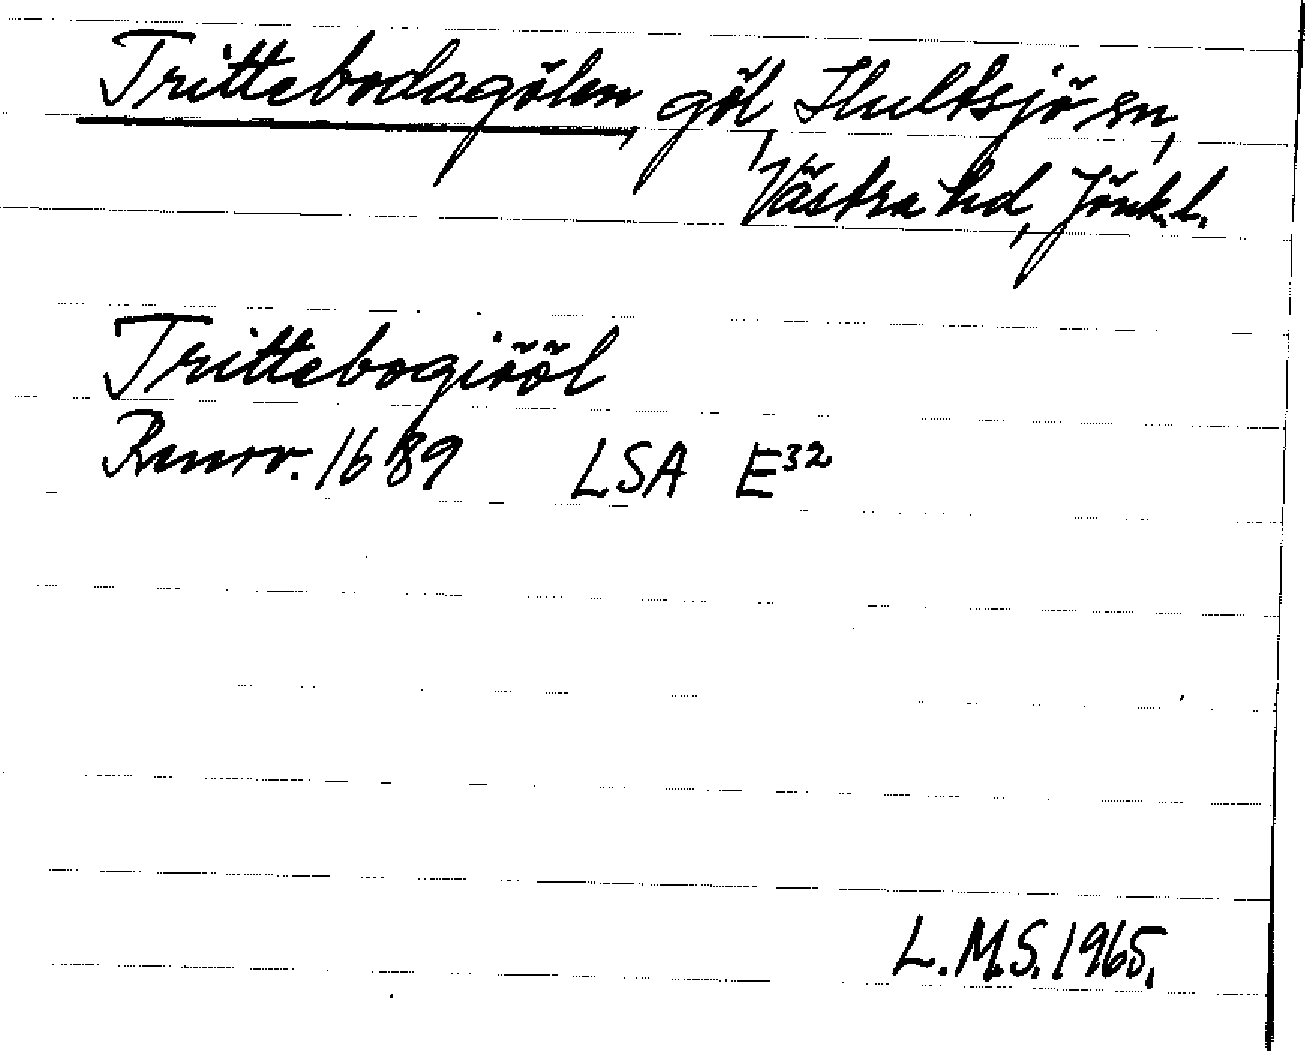 Trittebodagölen, göl, Hultsjö sn,
Västra hd, Jönk.l.
Trittebogiööl
Renov. 1689 LSA E32
L.M.S. 1965.